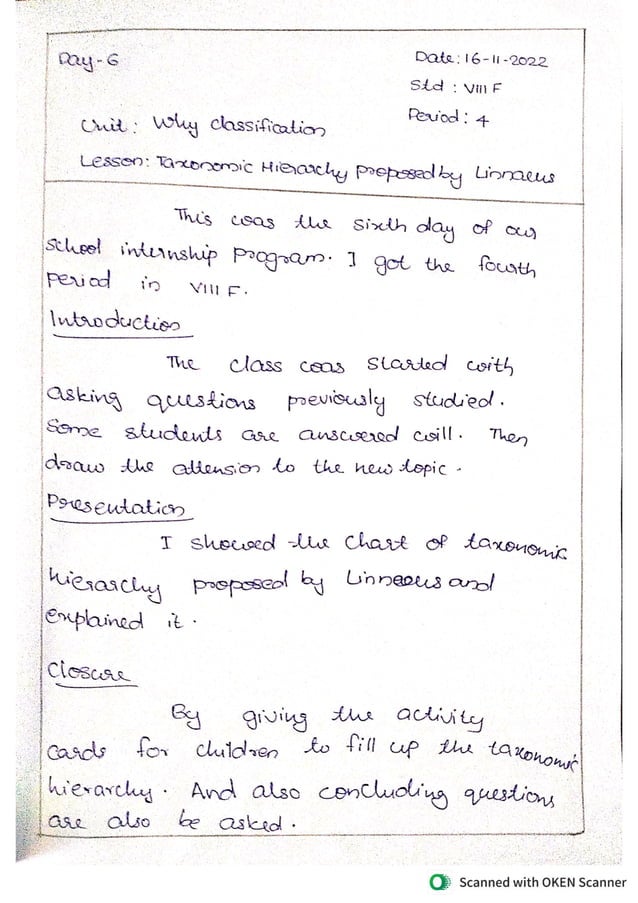 Day-6
Date: 16-11-2022
Std : VIII F
Period : 4
Unit: Why classification
Lesson: Taxonomic Hierarchy proposed by Linnaeus
This was the sixth day of our
school internship program. I got the fourth
period in VIII F.
Introduction
The class was started with
asking questions previously studied.
Some students are answered will. Then
draw the attension to the new topic.
Presentation
I showed the chart of taxonomic
hierarchy proposed by Linneaus and
explained it.
Closure
By giving the activity
cards for children to fill up the taxonomic
hierarchy. And also concluding questions
are also be asked.
Scanned with OKEN Scanner